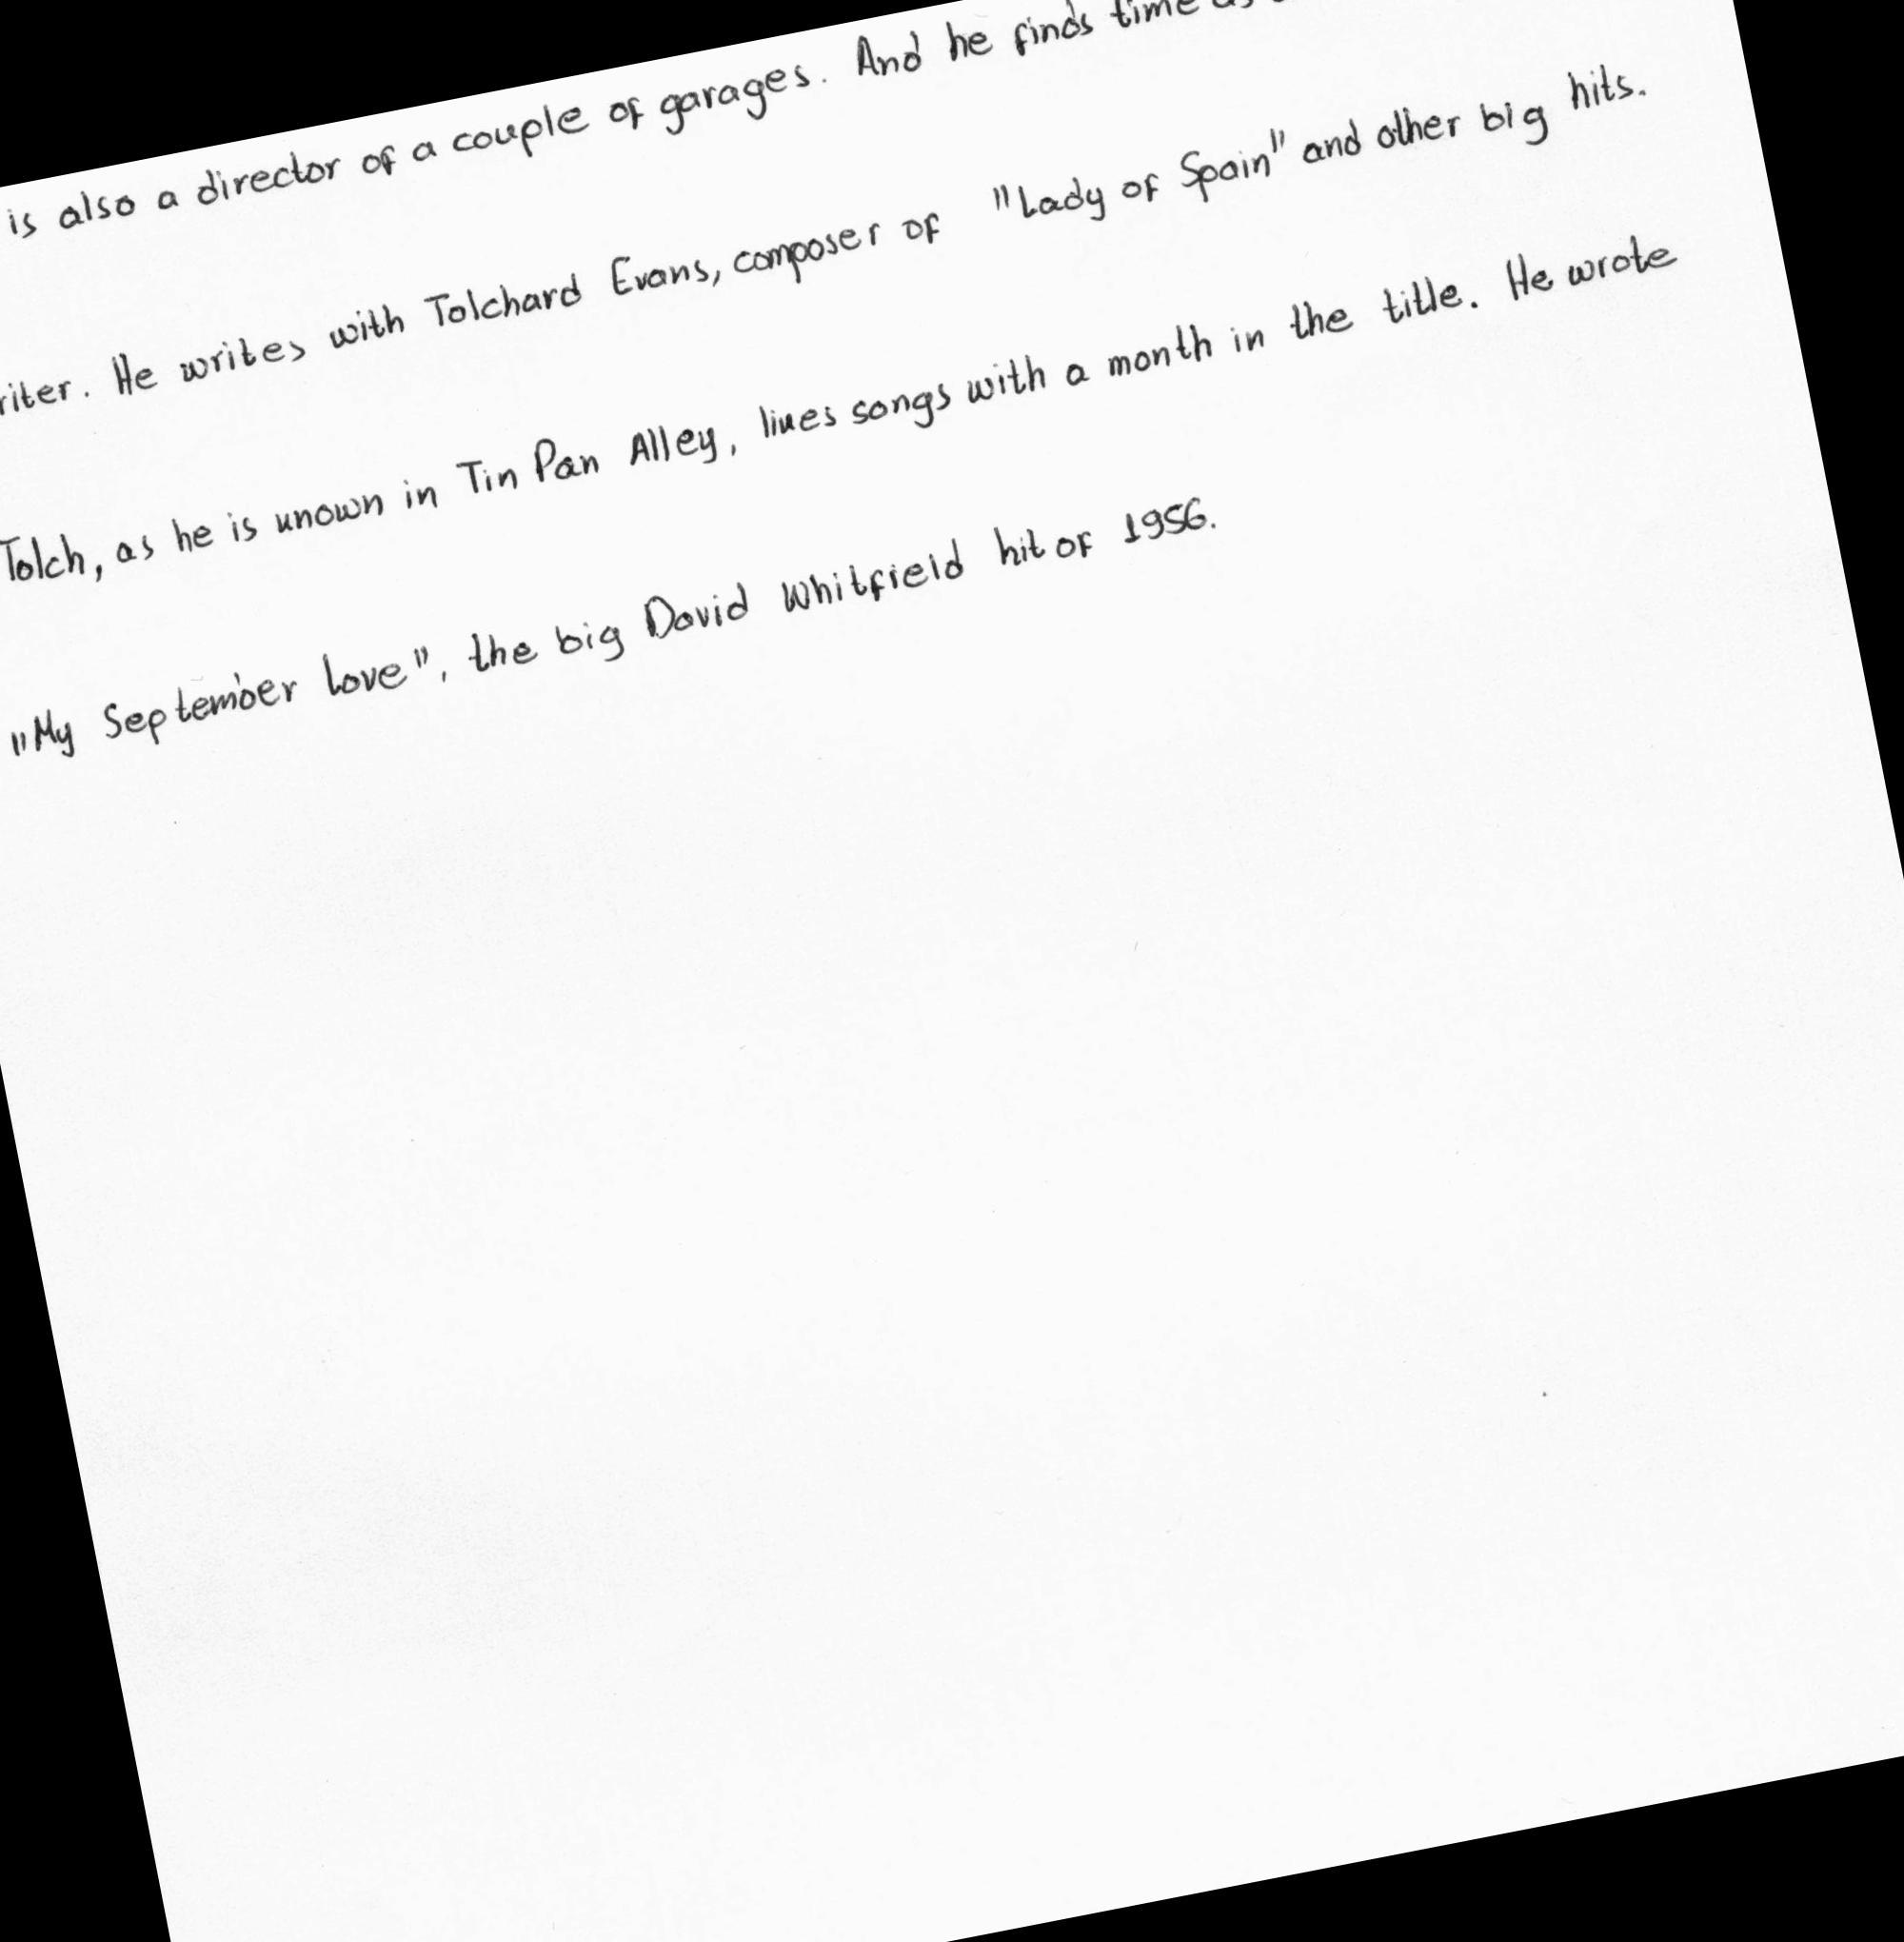 is also a director of a couple of garages. And he finds time as
riter. He writes with Tolchard Evans, composer of "Lady of Spain" and other big hits.
Tolch, as he is known in Tin Pan Alley, likes songs with a month in the title. He wrote
"My September love", the big David Whitfield hit of 1956.